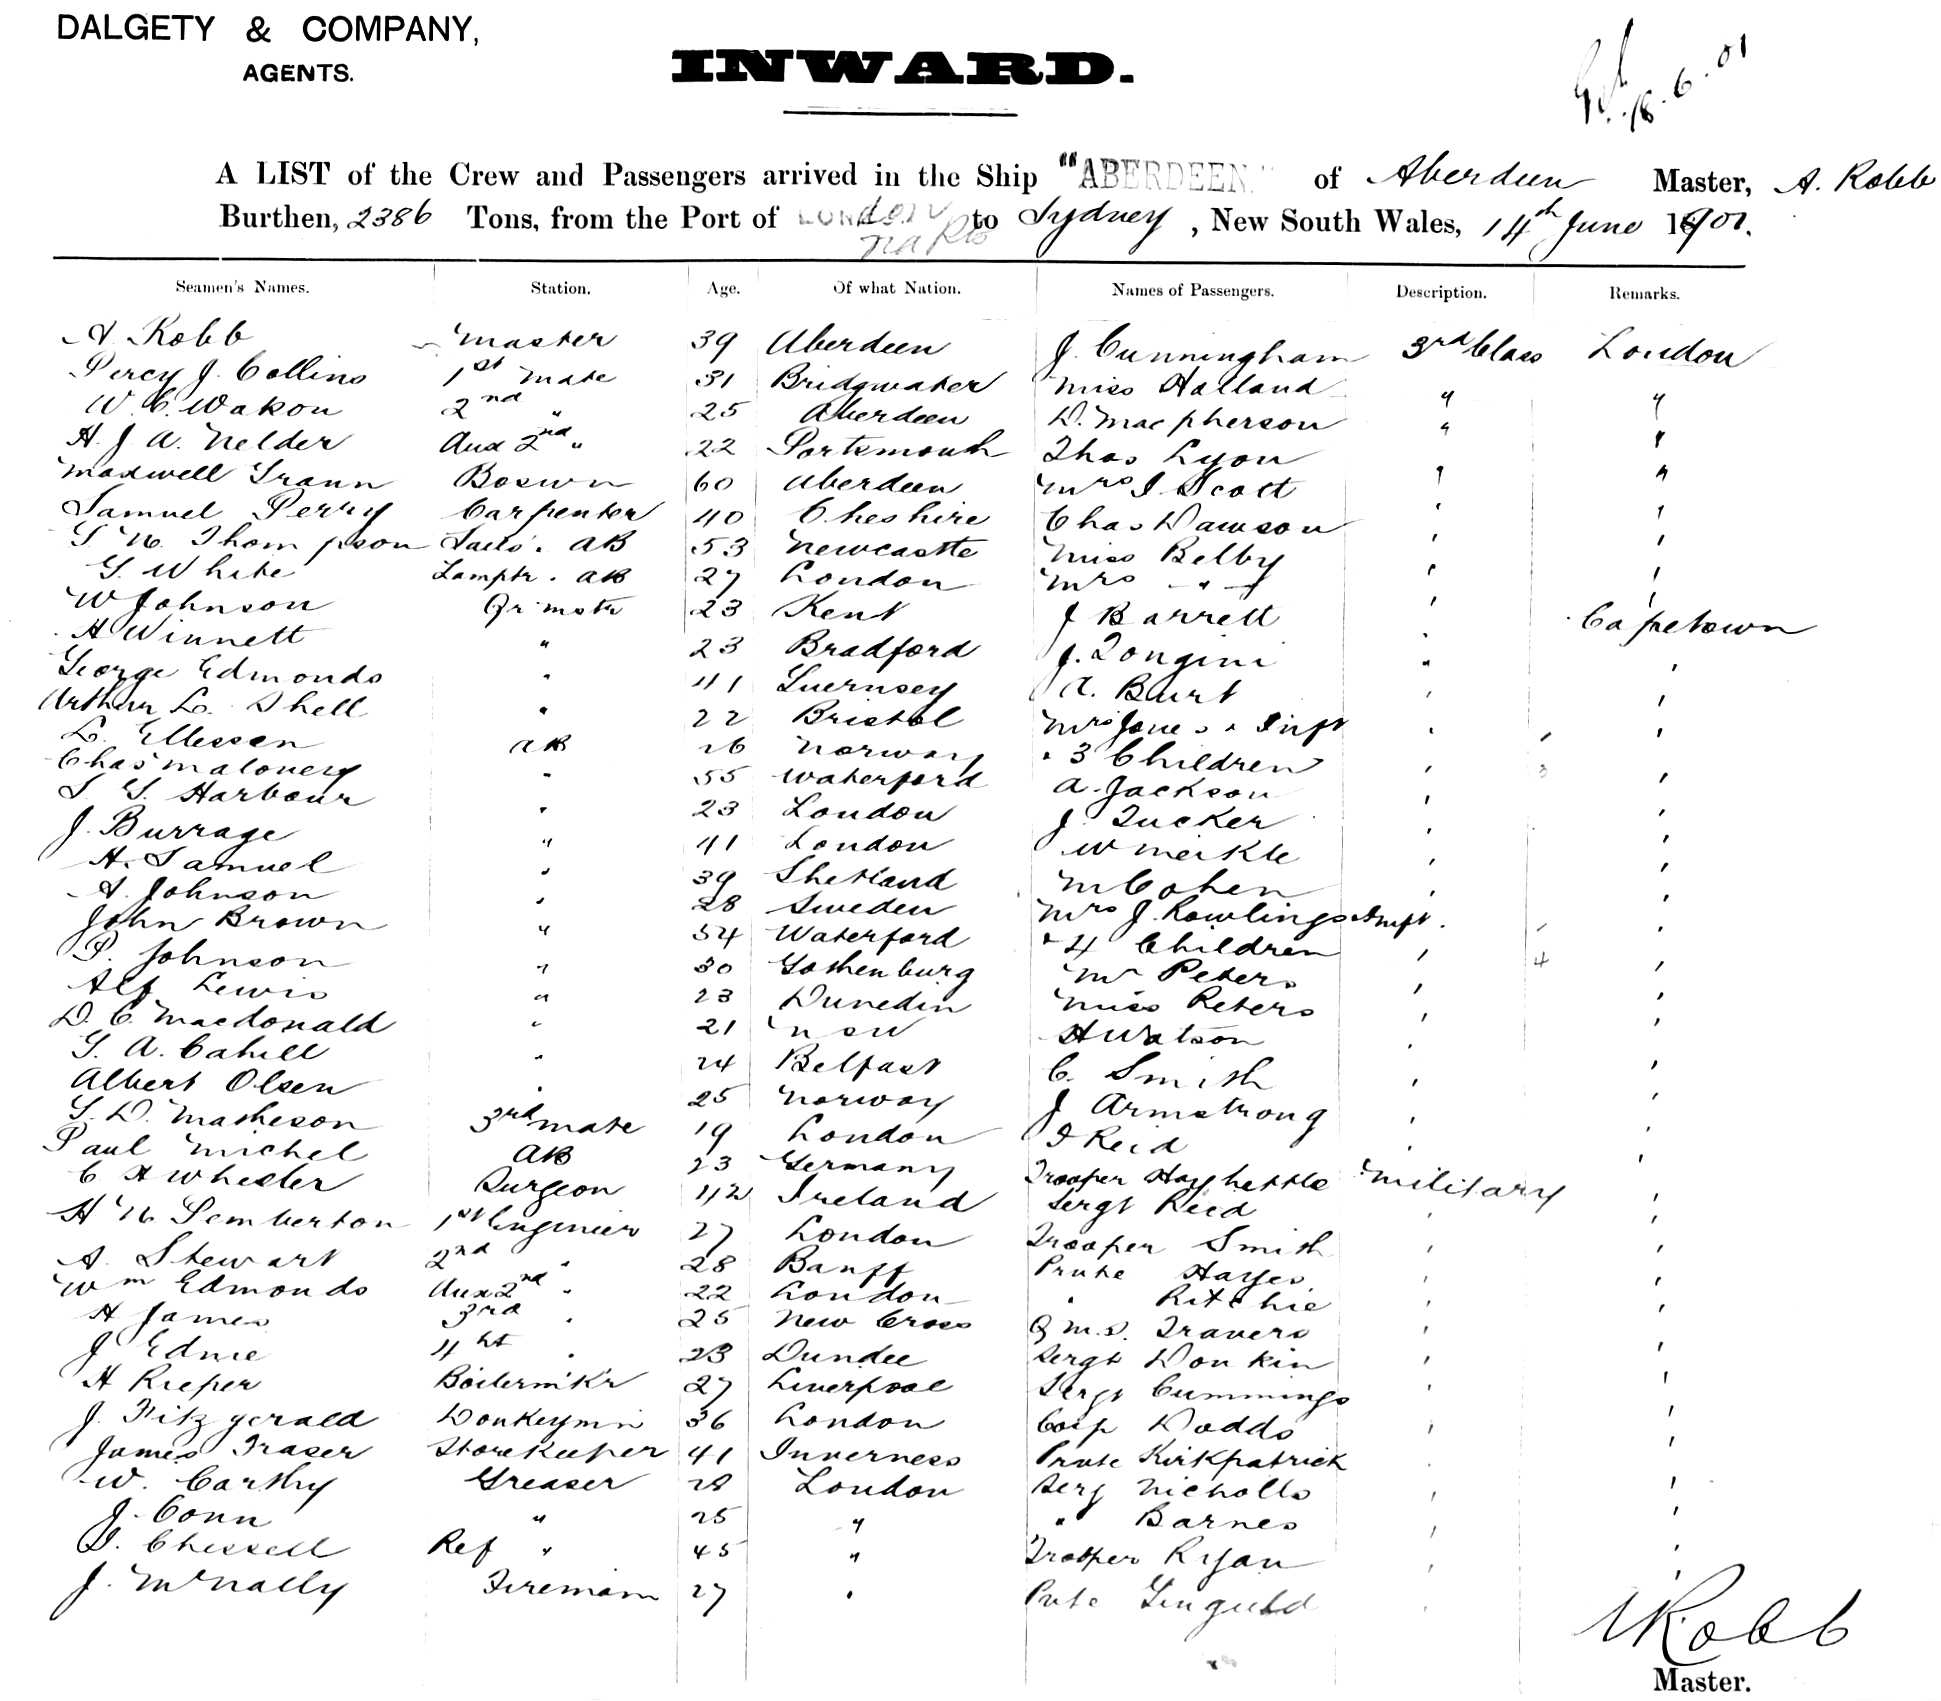 DALGETY & COMPANY,
AGENTS.
INWARD.
18.6.01
A LIST of the Crew and Passengers arrived in the Ship "ABERDEEN" of Aberdeen Master, A. Robb
Burthen, 2386 Tons, from the Port of LONDON to Sydney, New South Wales, 14th June 1901.
Seamen's Names. Station. Age. Of what Nation. Names of Passengers. Description. Remarks.
A Robb Master 39 Aberdeen J. Cunningham 3rd Class London
Percy J. Collins 1st Mate 31 Bridgwater Miss Halland " "
W. C. Wakon 2nd " 25 Aberdeen D. Macpherson " "
H. J A. Nelder Aux 2nd " 22 Portsmouth Thos Lyon " "
Maxwell Grann Boswn 60 Aberdeen Mrs I. Scott " "
Samuel Perry Carpenter 40 Cheshire Chas Dawson " "
G N. Thompson Sails. AB 53 Newcastle Miss Belby " "
G. White Lamptr. AB 27 London Mrs " " "
W Johnson Qr mstr 23 Kent J Barrett " Capetown
A Winnett " 23 Bradford J. Zongini " "
George Edmonds " 41 Guernsey A. Burt " "
Arthur L. Shell " 22 Bristol Mrs Jones & Inft " "
L. Ellessen AB 26 Norway & 3 Children " 3 "
Chas Maloney " 55 Waterford A. Jackson " "
S G. Harbour " 23 London J. Tucker " "
J. Burrage " 41 London W Meikle " "
H. Samuel " 39 Shetland M Cohen " "
A. Johnson " 28 Sweden Mrs J. Rowlings & Inft. "
John Brown " 54 Waterford & 4 Children " 4 "
P. Johnson " 30 Gothenburg Mr Peters " "
Alf Lewis " 23 Dunedin Miss Peters " "
D. C. Macdonald " 21 NSW H Watson " "
G. A. Cahill " 24 Belfast C. Smith " "
Albert Olsen " 25 Norway J Armstrong " "
G. D. Matheson 3rd Mate 19 London I Reid " "
Paul Michel AB 23 Germany Trooper Military "
C H Wheeler Surgeon 42 Ireland Sergt Reid " "
H N Pemberton 1st Engineer 27 London Trooper Smith " "
A. Stewart 2nd " 28 Banff Prvte Hayes " "
Wm Edmonds Aux 2nd " 22 London " Ritchie " "
H James 3rd " 25 New Cross Q M.S. Travers " "
J Edmie 4th " 23 Dundee Sergt Donkin " "
H Rieper Boilermk'r 27 Liverpool Sergt Cummings " "
J. Fitzgerald Donkeymn 36 London Corp Dodds " "
James Fraser Storekeeper 41 Inverness Prvte Kirkpatrick " "
W. Carthy Greaser 28 London Serg Nicholls " "
J. Conn " 25 " " Barnes " "
D. Chessell Ref " 45 " Trooper Ryan " "
J. McNally Fireman 27 " Prvte " "
A Robb
Master.